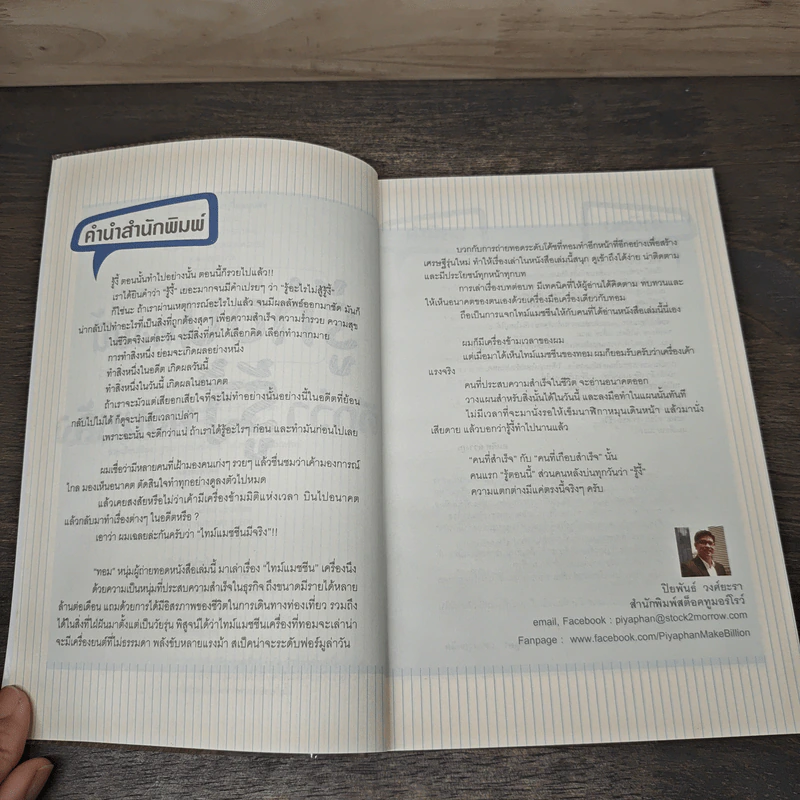 คำนำสำนักพิมพ์
รู้งี้ ตอนนั้นทำไปอย่างนั้น ตอนนี้ก็รวยไปแล้ว!!
เราได้ยินคำว่า "รู้งี้" เยอะมากจนมีคำเปรยๆ ว่า "รู้อะไรไม่สู้รู้งี้"
ก็ใช่นะ ถ้าเราผ่านเหตุการณ์อะไรไปแล้ว จนมีผลลัพธ์ออกมาชัด มันก็
น่ากลับไปทำอะไรที่เป็นสิ่งที่ถูกต้องสุดๆ เพื่อความสำเร็จ ความร่ำรวย ความสุข
ในชีวิตจริงแต่ละวัน จะมีสิ่งที่คนได้เลือกคิด เลือกทำมากมาย
การทำสิ่งหนึ่ง ย่อมจะเกิดผลอย่างหนึ่ง
ทำสิ่งหนึ่งในอดีต เกิดผลวันนี้
ทำสิ่งหนึ่งในวันนี้ เกิดผลในอนาคต
ถ้าเราจะมัวแต่เสียอกเสียใจที่จะไม่ทำอย่างนั้นอย่างนี้ในอดีตที่ย้อน
กลับไปไม่ได้ ก็ดูจะน่าเสียเวลาเปล่าๆ
เพราะฉะนั้น จะดีกว่าแน่ ถ้าเราได้รู้อะไรๆ ก่อน และทำมันก่อนไปเลย
ผมเชื่อว่ามีหลายคนที่เฝ้ามองคนเก่งๆ รวยๆ แล้วชื่นชมว่าเค้ามองการณ์
ไกล มองเห็นอนาคต ตัดสินใจทำทุกอย่างดูลงตัวไปหมด
แล้วเคยสงสัยหรือไม่ว่าเค้ามีเครื่องข้ามมิติแห่งเวลา บินไปอนาคต
แล้วกลับมาทำเรื่องต่างๆ ในอดีตหรือ ?
เอาว่า ผมเฉลยละกันครับว่า "ไทม์แมชชีนมีจริง"!!
"ทอม" หนุ่มผู้ถ่ายทอดหนังสือเล่มนี้ มาเล่าเรื่อง "ไทม์แมชชีน" เครื่องนึง
ด้วยความเป็นหนุ่มที่ประสบความสำเร็จในธุรกิจ ถึงขนาดมีรายได้หลาย
ล้านต่อเดือน แถมด้วยการได้มีอิสรภาพของชีวิตในการเดินทางท่องเที่ยว รวมถึง
ได้ในสิ่งที่ใฝ่ฝันมาตั้งแต่เป็นวัยรุ่น พิสูจน์ได้ว่าไทม์แมชชีนเครื่องที่ทอมจะเล่าน่า
จะมีเครื่องยนต์ที่ไม่ธรรมดา พลังขับหลายแรงม้า สเป็คน่าจะระดับฟอร์มูล่าวัน
บวกกับการถ่ายทอดระดับโค้ชที่ทอมทำอีกหน้าที่อีกอย่างเพื่อสร้าง
เศรษฐีรุ่นใหม่ ทำให้เรื่องเล่าในหนังสือเล่มนี้สนุก ดูเข้าถึงได้ง่าย น่าติดตาม
และมีประโยชน์ทุกหน้าทุกบท
การเล่าเรื่องบทต่อบท มีเทคนิคที่ให้ผู้อ่านได้ติดตาม พบทวนและ
ให้เห็นอนาคตของตนเองด้วยเครื่องมือเครื่องเดียวกับทอม
ถือเป็นการแจกไทม์แมชชีนให้กับคนที่ได้อ่านหนังสือเล่มนี้นี่เอง
ผมก็มีเครื่องข้ามเวลาของผม
แต่เมื่อมาได้เห็นไทม์แมชชีนของทอม ผมก็ยอมรับครับว่าเครื่องเค้า
แรงจริง
คนที่ประสบความสำเร็จในชีวิต จะอ่านอนาคตออก
วางแผนสำหรับสิ่งนั้นได้ในวันนี้ และลงมือทำในแผนนั้นทันที
ไม่มีเวลาที่จะมานั่งรอให้เข็มนาฬิกาหมุนเดินหน้า แล้วมานั่ง
เสียดาย แล้วบอกว่ารู้งี้ทำไปนานแล้ว
"คนที่สำเร็จ" กับ "คนที่เกือบสำเร็จ" นั้น
คนแรก "รู้ตอนนี้" ส่วนคนหลังบ่นทุกวันว่า "รู้งี้"
ความแตกต่างมีแค่ตรงนี้จริงๆ ครับ
ปิยพันธ์ วงศ์ยะรา
สำนักพิมพ์สต็อคทูมอร์โรว์
email, Facebook : piyaphan@stock2morrow.com
Fanpage : www.facebook.com/PiyaphanMakeBillion